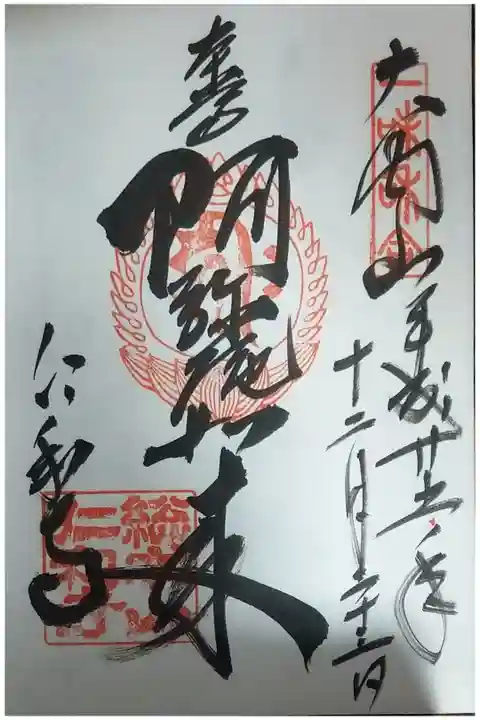 大内山
平成廿五年
十二月二十三日
奉拝
阿弥陀如来
仁和寺
總本山
仁和寺